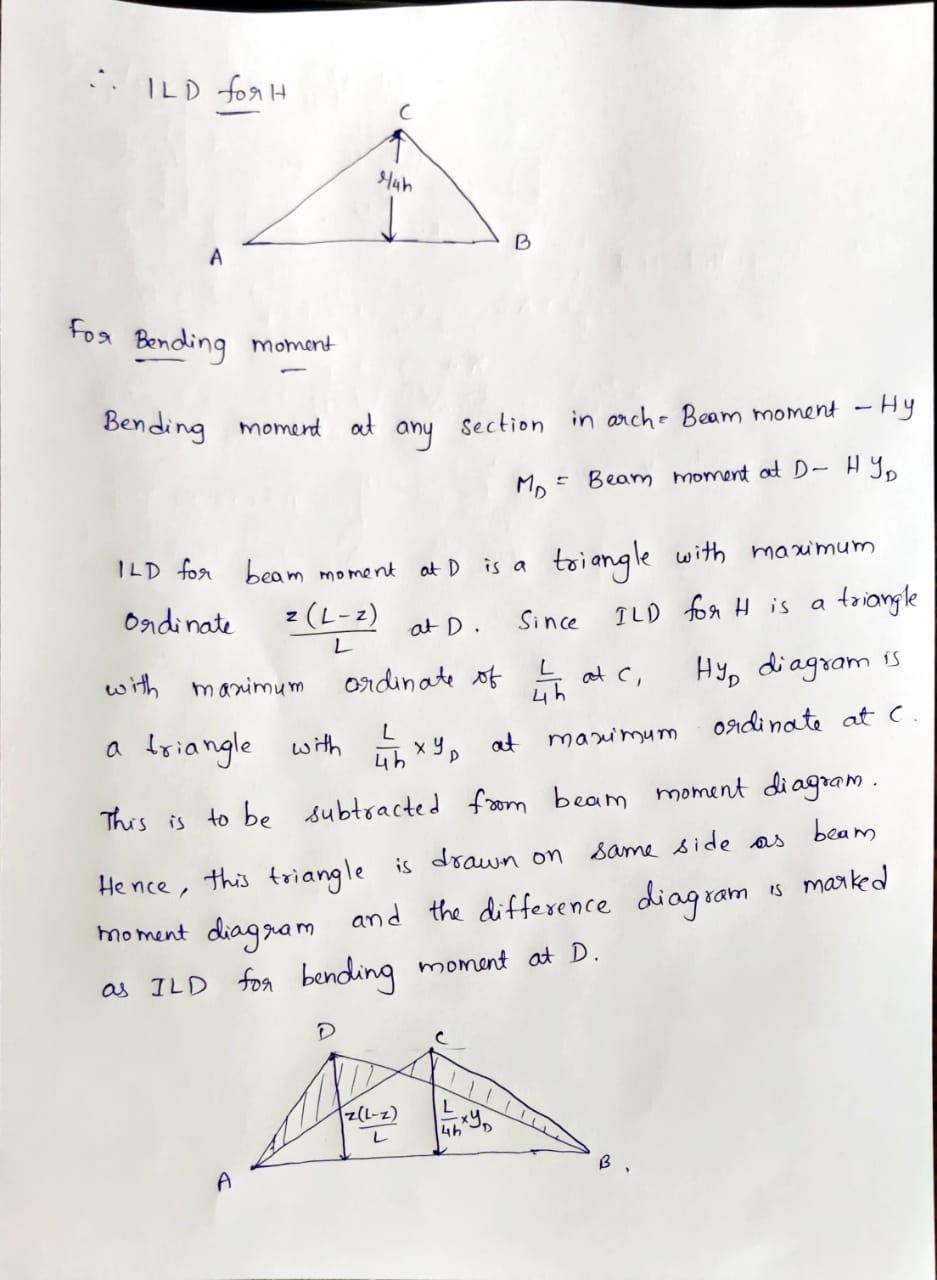 ∴ ILD for H
C
l/4h
A
B
For Bending moment
Bending moment at any section in arch = Beam moment - Hy
M_D = Beam moment at D - H y_D
ILD for beam moment at D is a triangle with maximum
Ordinate z(L-z)/L at D. Since ILD for H is a triangle
with maximum ordinate of L/4h at C, Hy_D diagram is
a triangle with L/4h × y_D at maximum ordinate at C.
This is to be subtracted from beam moment diagram.
Hence, this triangle is drawn on same side as beam
moment diagram and the difference diagram is marked
as ILD for bending moment at D.
D
C
z(L-z)/L
L/4h × y_D
A
B.